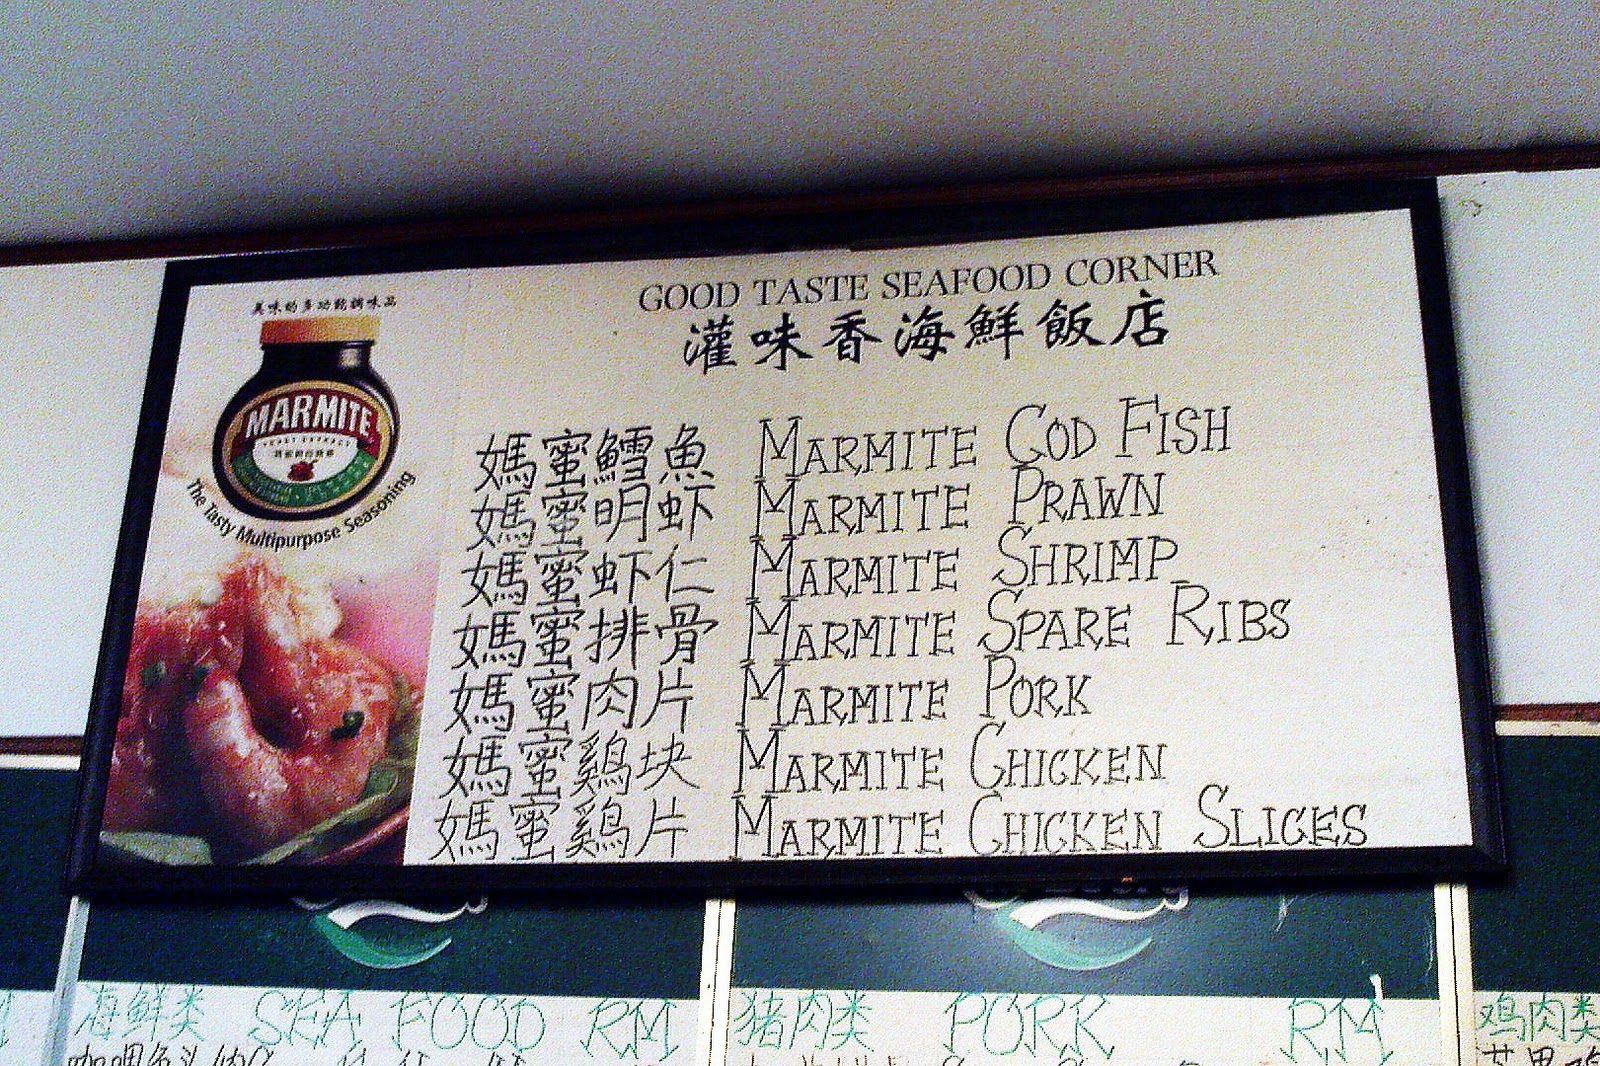 GOOD TASTE SEAFOOD CORNER
灌味香海鮮飯店
美味的多功能調味品
MARMITE
YEAST EXTRACT
The Tasty Multipurpose Seasoning
媽蜜鱈魚 MARMITE COD FISH
媽蜜明虾 MARMITE PRAWN
媽蜜虾仁 MARMITE SHRIMP
媽蜜排骨 MARMITE SPARE RIBS
媽蜜肉片 MARMITE PORK
媽蜜鷄块 MARMITE CHICKEN
媽蜜鷄片 MARMITE CHICKEN SLICES
海鲜类 SEA FOOD RM
猪肉类 PORK RM
鸡肉类